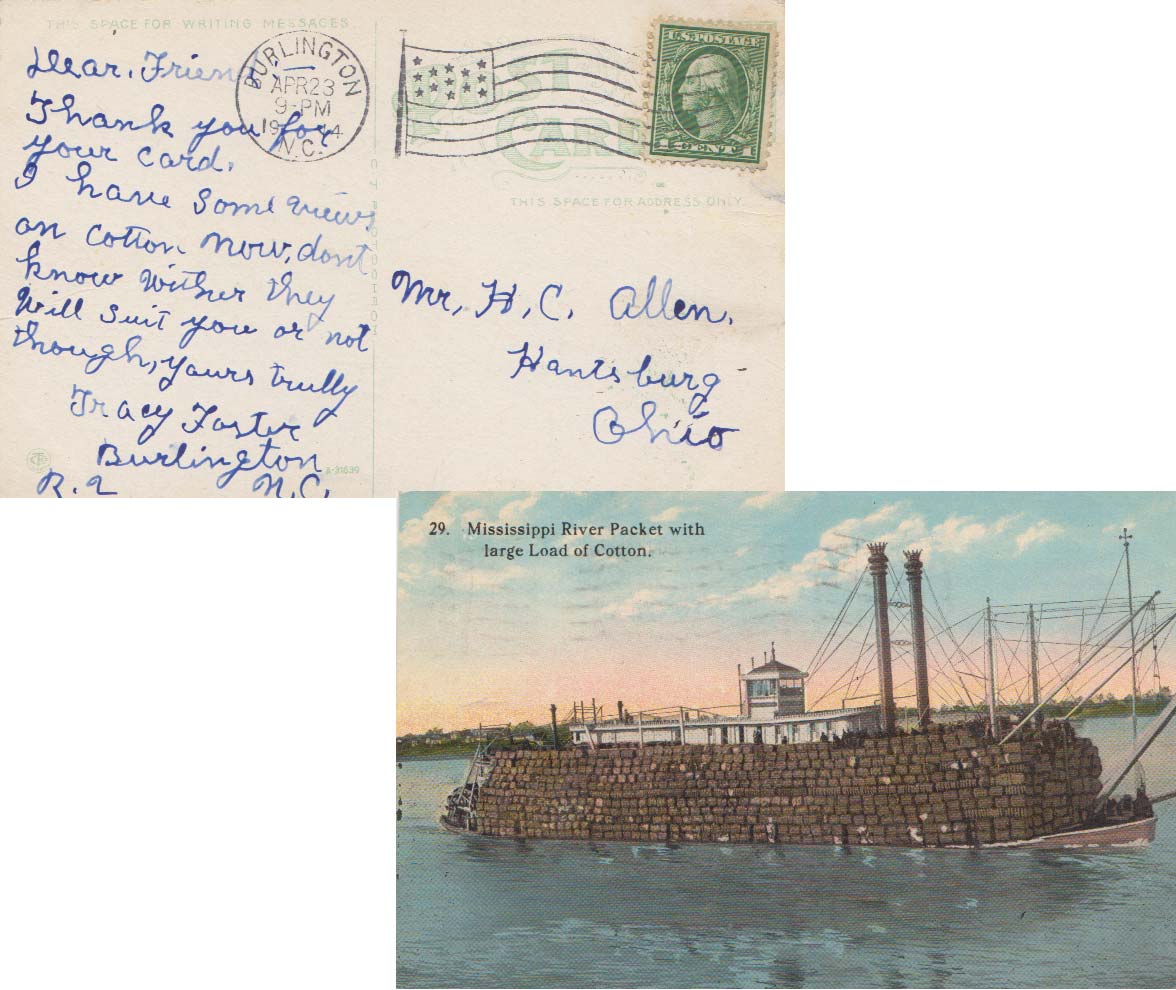 THIS SPACE FOR WRITING MESSAGES.
Dear, Friend,
Thank you for
your card.
I have some views
on cotton now, dont
know wither they
will suit you or not
though, yours trully
Tracy Foster
Burlington
R. 2 N.C.
A-31639
BURLINGTON
APR 23
9-PM
N.C.
POST
CARD
U.S. POSTAGE
1 CENT 1
THIS SPACE FOR ADDRESS ONLY.
Mr, H, C, Allen,
Hantsburg
Ohio
29. Mississippi River Packet with
large Load of Cotton.